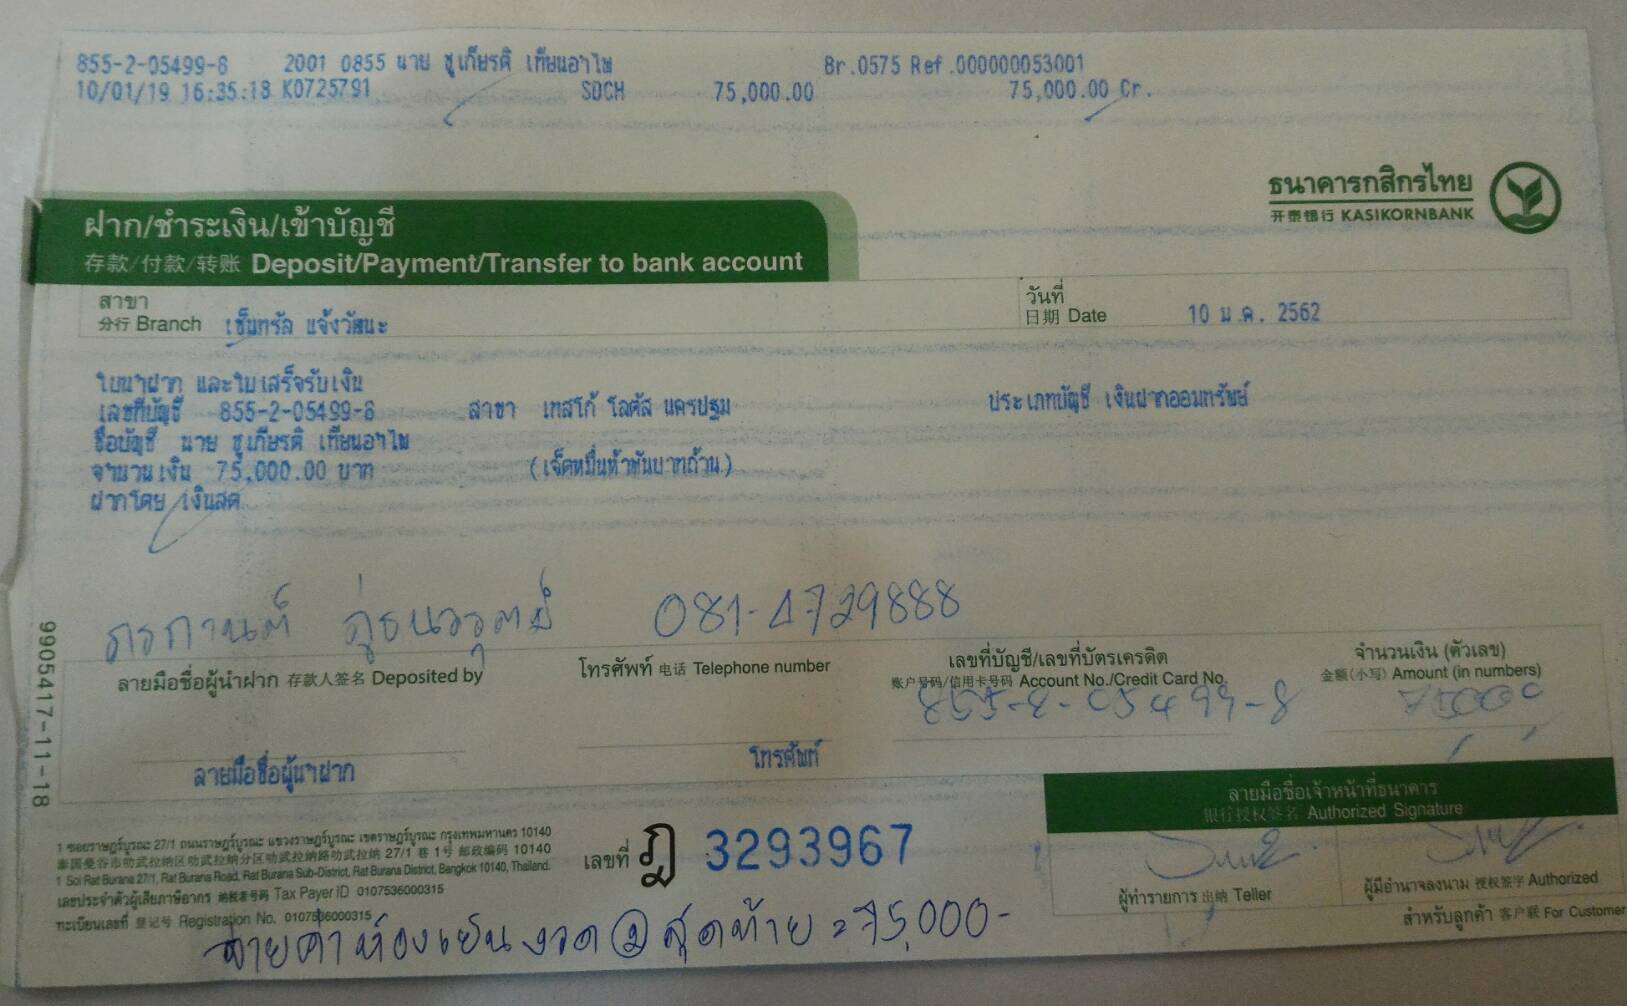 855-2-05499-8 2001 0855 นาย ชูเกียรติ เทียนอำไพ Br.0575 Ref.000000053001
10/01/19 16:35:18 K0725791 SDCH 75,000.00 75,000.00 Cr.
ธนาคารกสิกรไทย
开泰银行 KASIKORNBANK
ฝาก/ชำระเงิน/เข้าบัญชี
存款/付款/转账 Deposit/Payment/Transfer to bank account
สาขา
分行 Branch เซ็นทรัล แจ้งวัฒนะ
วันที่
日期 Date 10 ม.ค. 2562
ใบนำฝาก และใบเสร็จรับเงิน
เลขที่บัญชี 855-2-05499-8 สาขา เทสโก้ โลตัส นครปฐม ประเภทบัญชี เงินฝากออมทรัพย์
ชื่อบัญชี นาย ชูเกียรติ เทียนอำไพ
จำนวนเงิน 75,000.00 บาท (เจ็ดหมื่นห้าพันบาทถ้วน)
ฝากโดย เงินสด
ภรกานต์ ภู่ธนวรุตม์ 081-4729888
ลายมือชื่อผู้นำฝาก 存款人签名 Deposited by
โทรศัพท์ 电话 Telephone number
เลขที่บัญชี/เลขที่บัตรเครดิต
账户号码/信用卡号码 Account No./Credit Card No.
855-2-05499-8
จำนวนเงิน (ตัวเลข)
金额(小写) Amount (in numbers)
75000
ลายมือชื่อผู้นำฝาก โทรศัพท์
9905417-11-18
ลายมือชื่อเจ้าหน้าที่ธนาคาร
银行授权签名 Authorized Signature
ผู้ทำรายการ 出纳 Teller
ผู้มีอำนาจลงนาม 授权签字 Authorized
สำหรับลูกค้า 客户联 For Customer
1 ซอยราษฎร์บูรณะ 27/1 ถนนราษฎร์บูรณะ แขวงราษฎร์บูรณะ เขตราษฎร์บูรณะ กรุงเทพมหานคร 10140
泰国曼谷市叻武拉纳区叻武拉纳分区叻武拉纳路叻武拉纳 27/1 巷 1号 邮政编码 10140
1 Soi Rat Burana 27/1, Rat Burana Road, Rat Burana Sub-District, Rat Burana District, Bangkok 10140, Thailand.
เลขประจำตัวผู้เสียภาษีอากร 纳税者号码 Tax Payer ID 0107536000315
ทะเบียนเลขที่ 登记号 Registration No. 0107536000315
เลขที่ ฎ 3293967
จ่ายค่าห้องเย็นงวด ② สุดท้าย = 75,000-